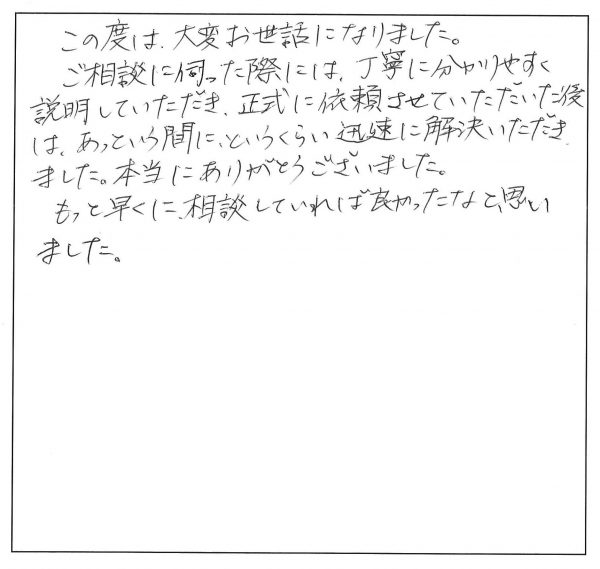 この度は、大変お世話になりました。
ご相談に伺った際には、丁寧に分かりやすく
説明していただき、正式に依頼させていただいた後
は、あっという間に、というくらい迅速に解決いただき
ました。本当にありがとうございました。
もっと早くに、相談していれば良かったなと、思い
ました。